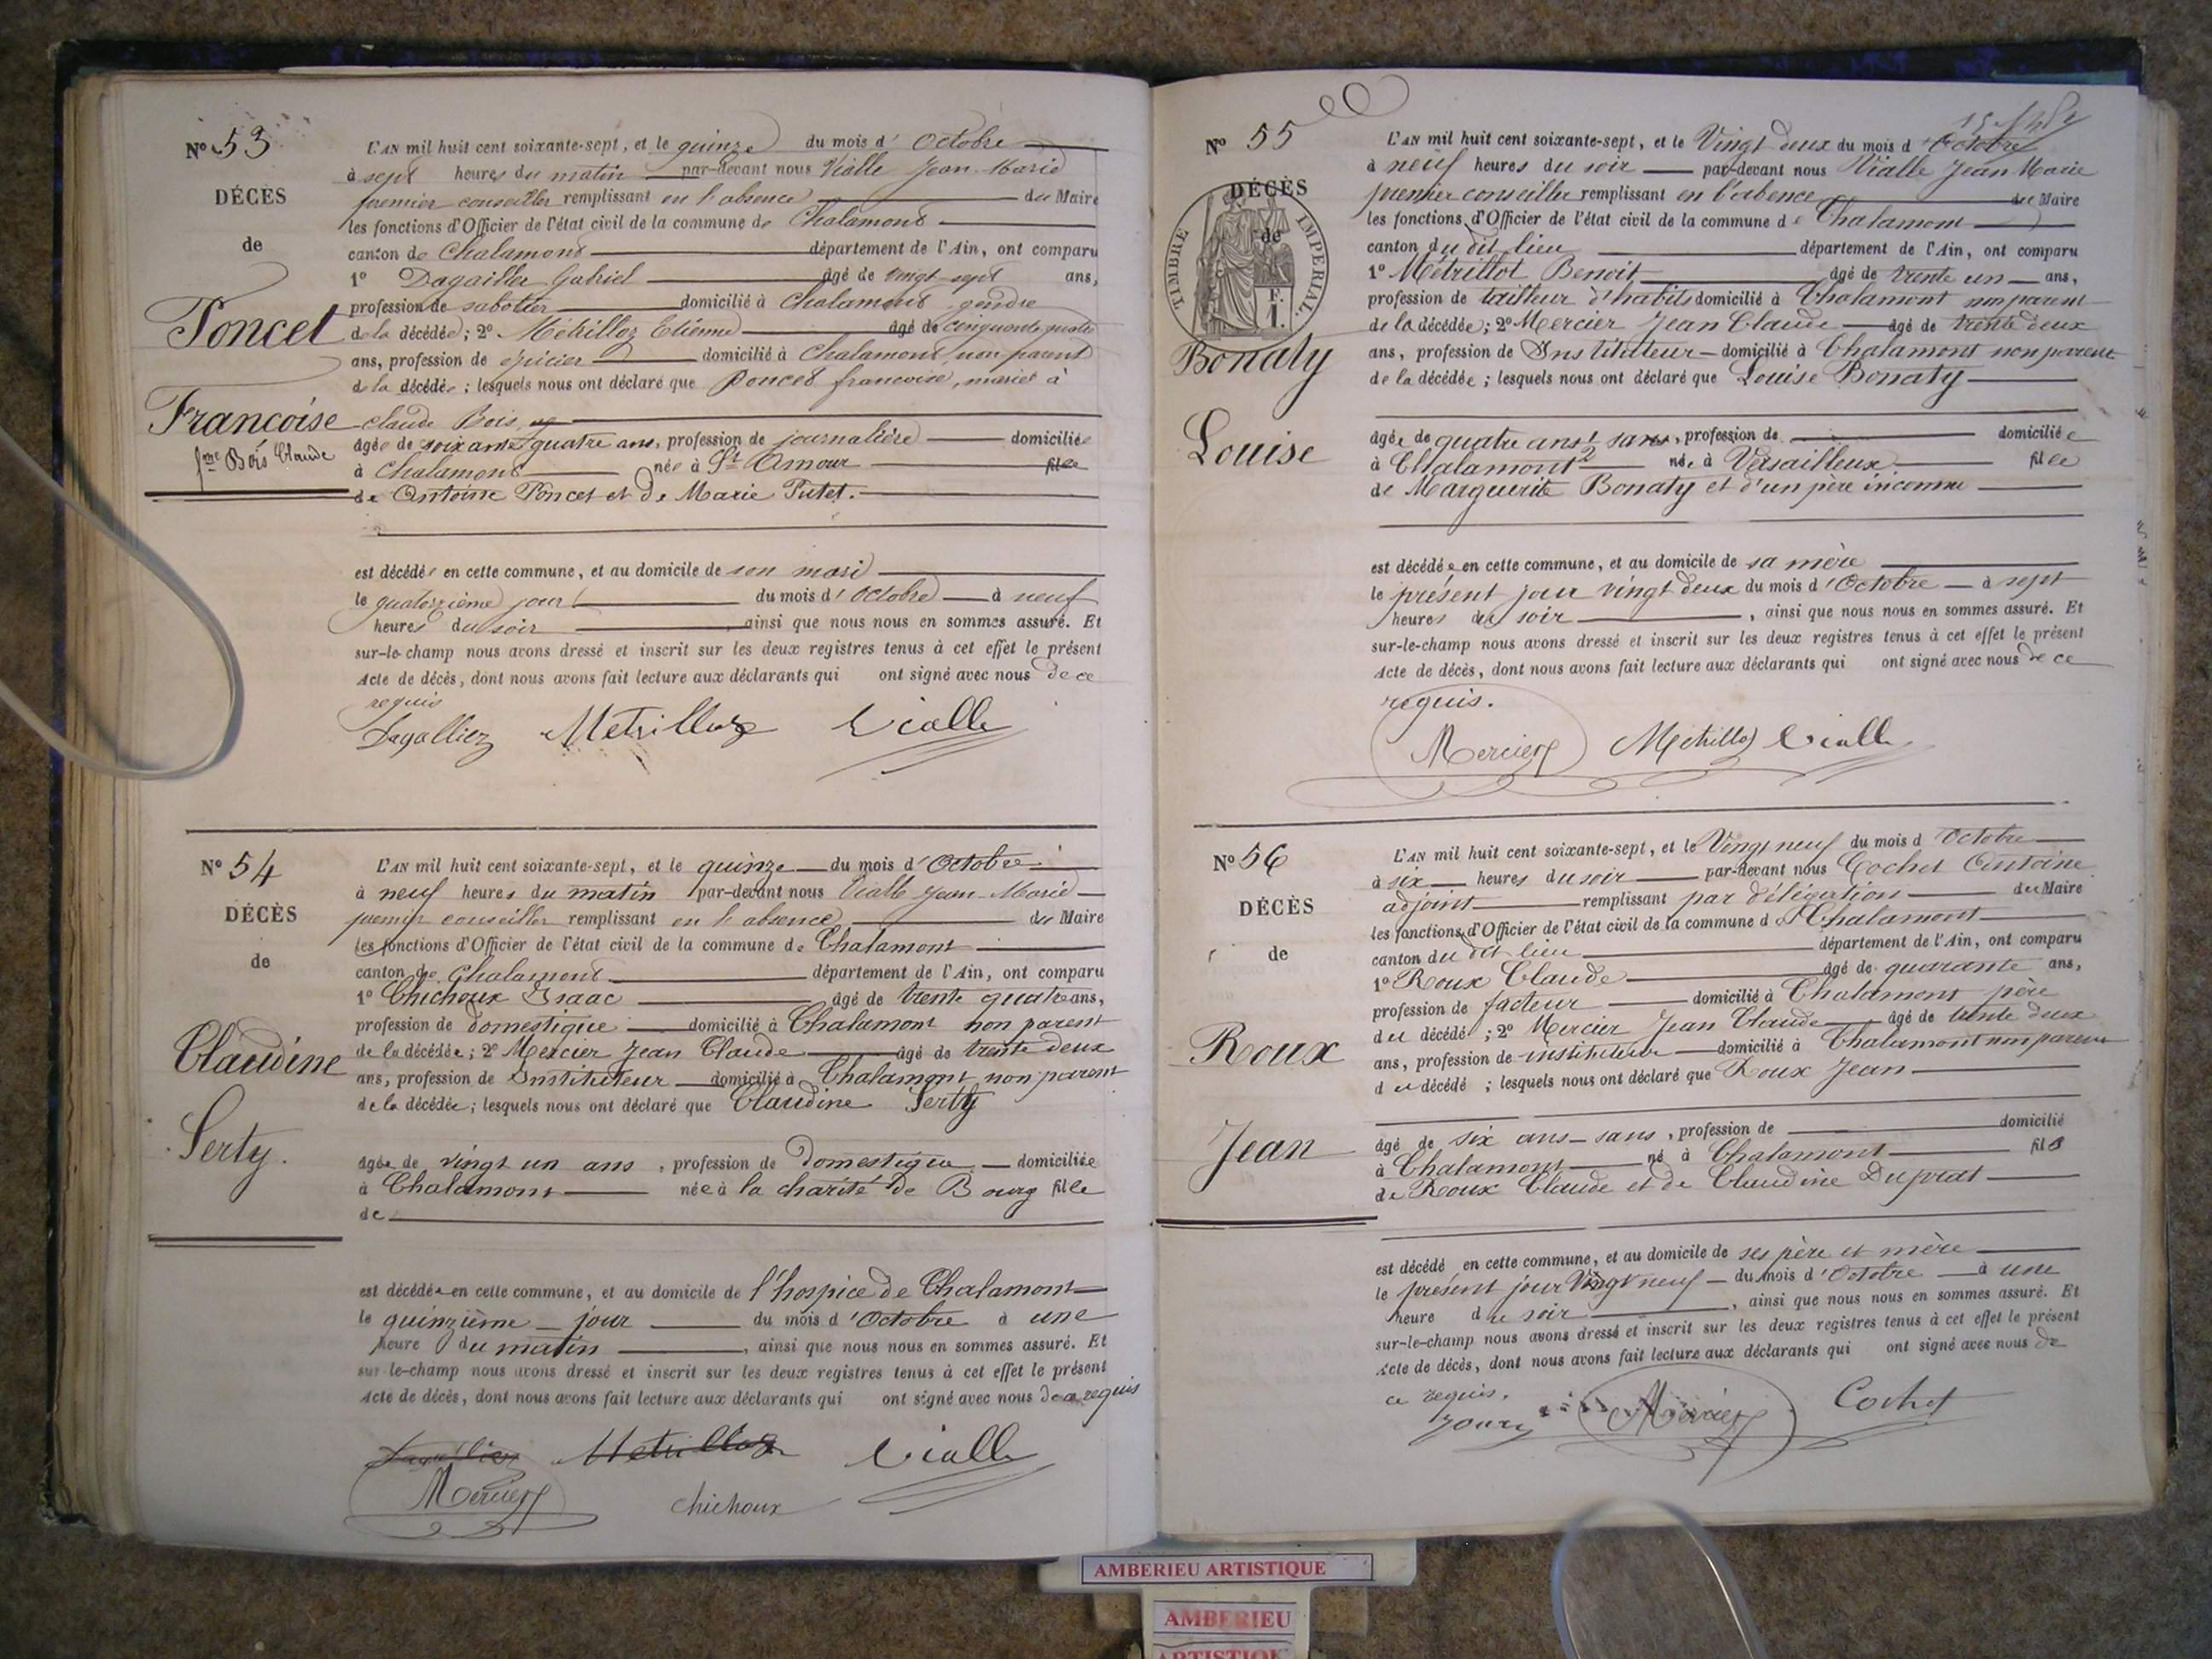 N° 53
DÉCÈS
de
Poncet
Francoise
fme Bois Claude
L'AN mil huit cent soixante-sept, et le quinze du mois d'Octobre
à sept heures du matin par-devant nous Vialle Jean Marie
premier conseiller remplissant en l'absence du Maire
les fonctions d'Officier de l'état civil de la commune de Chalamont
canton de Chalamont département de l'Ain, ont comparu
1° Dagallier Gabriel âgé de vingt-sept ans,
profession de sabotier domicilié à Chalamont gendre
de la décédée; 2° Métrilloz Etienne âgé de cinquante quatre
ans, profession de épicier domicilié à Chalamont non parent
de la décédée; lesquels nous ont déclaré que Poncet francoise, mariée à
claude Bois
âgée de soixante quatre ans, profession de journalière domiciliée
à Chalamont née à St Amour fille
de Antoine Poncet et de Marie Putet.
est décédée en cette commune, et au domicile de son mari
le quatorzième jour du mois d'Octobre à neuf
heures du soir, ainsi que nous nous en sommes assuré. Et
sur-le-champ nous avons dressé et inscrit sur les deux registres tenus à cet effet le présent
Acte de décès, dont nous avons fait lecture aux déclarants qui ont signé avec nous de ce
requis
Dagallier Metrilloz Vialle
N° 54
DÉCÈS
de
Claudine
Serty.
L'AN mil huit cent soixante-sept, et le quinze du mois d'Octobre
à neuf heures du matin par-devant nous Vialle Jean Marie
premier conseiller remplissant en l'absence du Maire
les fonctions d'Officier de l'état civil de la commune de Chalamont
canton de Chalamont département de l'Ain, ont comparu
1° Chichoux Isaac âgé de trente quatre ans,
profession de domestique domicilié à Chalamont non parent
de la décédée; 2° Mercier Jean Claude âgé de trente deux
ans, profession de Instituteur domicilié à Chalamont non parent
de la décédée; lesquels nous ont déclaré que Claudine Serty
âgée de vingt un ans, profession de Domestique domiciliée
à Chalamont née à la charité de Bourg fille
de
est décédée en cette commune, et au domicile de l'hospice de Chalamont
le quinzième jour du mois d'Octobre à une
heure du matin, ainsi que nous nous en sommes assuré. Et
sur-le-champ nous avons dressé et inscrit sur les deux registres tenus à cet effet le présent
Acte de décès, dont nous avons fait lecture aux déclarants qui ont signé avec nous de ce requis
Dagallier Metrilloz Vialle
Mercier chichoux
N° 55
DÉCÈS
de
TIMBRE IMPÉRIAL.
F.
1.
Bonaty
Louise
L'AN mil huit cent soixante-sept, et le Vingt deux du mois d'Octobre
à neuf heures du soir par-devant nous Vialle Jean Marie
premier conseiller remplissant en l'absence du Maire
les fonctions d'Officier de l'état civil de la commune de Chalamont
canton du dit lieu département de l'Ain, ont comparu
1° Métrillot Benoit âgé de trente un ans,
profession de tailleur d'habits domicilié à Chalamont non parent
de la décédée; 2° Mercier Jean Claude âgé de trente deux
ans, profession de Instituteur domicilié à Chalamont non parent
de la décédée; lesquels nous ont déclaré que Louise Bonaty
âgée de quatre ans 1/2 sans, profession de domiciliée
à Chalamont née à Versailleux fille
de Marguerite Bonaty et d'un père inconnu
est décédée en cette commune, et au domicile de sa mère
le présent jour vingt deux du mois d'Octobre à sept
heures du soir, ainsi que nous nous en sommes assuré. Et
sur-le-champ nous avons dressé et inscrit sur les deux registres tenus à cet effet le présent
Acte de décès, dont nous avons fait lecture aux déclarants qui ont signé avec nous de ce
requis.
Mercier Metrillot Vialle
N° 56
DÉCÈS
de
Roux
Jean
L'AN mil huit cent soixante-sept, et le Vingt neuf du mois d Octobre
à six heures du soir par-devant nous Cochet Antoine
adjoint remplissant par délégation du Maire
les fonctions d'Officier de l'état civil de la commune d Chalamont
canton du dit lieu département de l'Ain, ont comparu
1° Roux Claude âgé de quarante ans,
profession de facteur domicilié à Chalamont père
du décédé; 2° Mercier Jean Claude âgé de trente deux
ans, profession de instituteur domicilié à Chalamont non parent
du décédé; lesquels nous ont déclaré que Roux Jean
âgé de six ans sans, profession de domicilié
à Chalamont né à Chalamont fils
de Roux Claude et de Claudine Duprat
est décédé en cette commune, et au domicile de ses père et mère
le présent jour Vingt neuf du mois d'Octobre à une
heure du soir, ainsi que nous nous en sommes assuré. Et
sur-le-champ nous avons dressé et inscrit sur les deux registres tenus à cet effet le présent
Acte de décès, dont nous avons fait lecture aux déclarants qui ont signé avec nous de
ce requis.
Mercier Cochet
AMBERIEU ARTISTIQUE
AMBERIEU
ARTISTIQUE